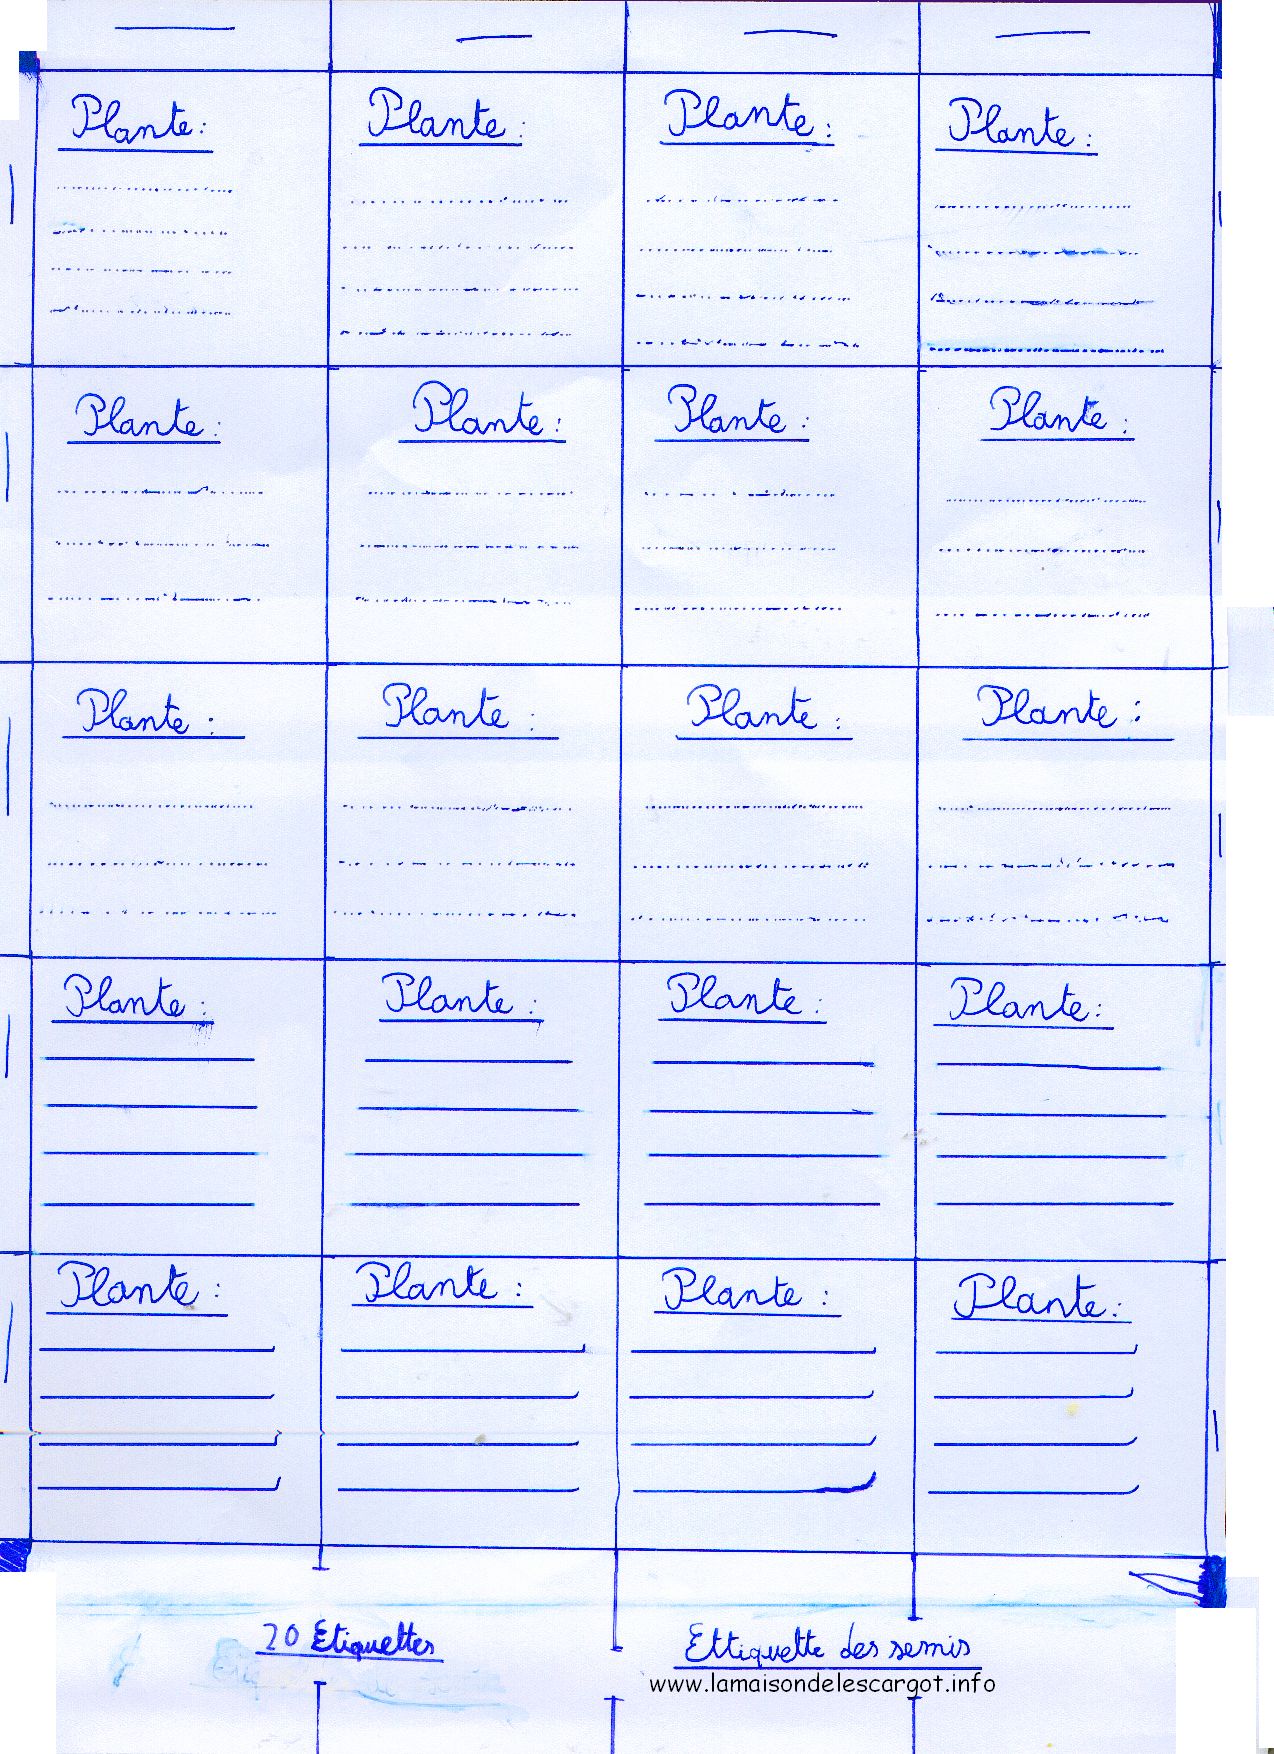 Plante: Plante: Plante: Plante:
Plante: Plante: Plante: Plante:
Plante: Plante: Plante: Plante:
Plante: Plante: Plante: Plante:
Plante: Plante: Plante: Plante:
20 Etiquettes
Ettiquette des semis
www.lamaisondelescargot.info